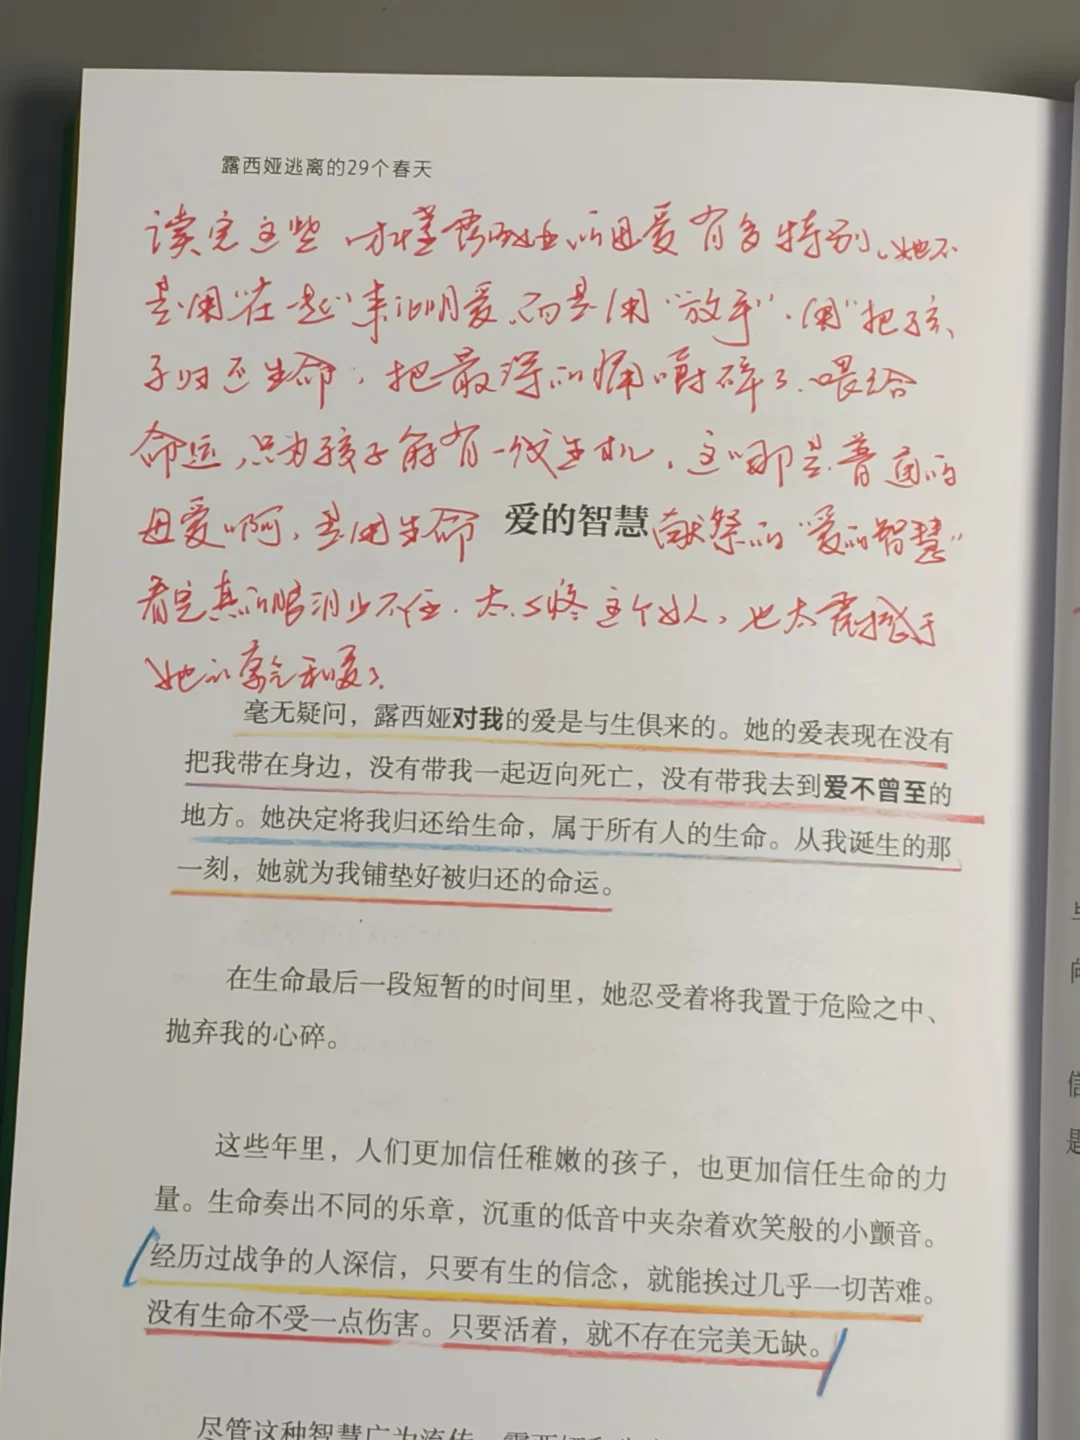 露西娅逃离的29个春天
读完这些 才懂露西娅的母爱有多特别。她不
是用“在一起”来证明爱,而是用“放手”.用“把孩
子归还生命,把最深的痛嚼碎了.喂给
命运,只为孩子能有一线生机,这哪是普通的
母爱啊,是用生命 爱的智慧 献祭的“爱的智慧”
看完真的眼泪止不住.太心疼这个女人,也太震撼于
她的勇气和爱了.
毫无疑问，露西娅对我的爱是与生俱来的。她的爱表现在没有
把我带在身边，没有带我一起迈向死亡，没有带我去到爱不曾至的
地方。她决定将我归还给生命，属于所有人的生命。从我诞生的那
一刻，她就为我铺垫好被归还的命运。
在生命最后一段短暂的时间里，她忍受着将我置于危险之中、
抛弃我的心碎。
这些年里，人们更加信任稚嫩的孩子，也更加信任生命的力
量。生命奏出不同的乐章，沉重的低音中夹杂着欢笑般的小颤音。
经历过战争的人深信，只要有生的信念，就能挨过几乎一切苦难。
没有生命不受一点伤害。只要活着，就不存在完美无缺。
尽管这种智慧广为流传，露西娅